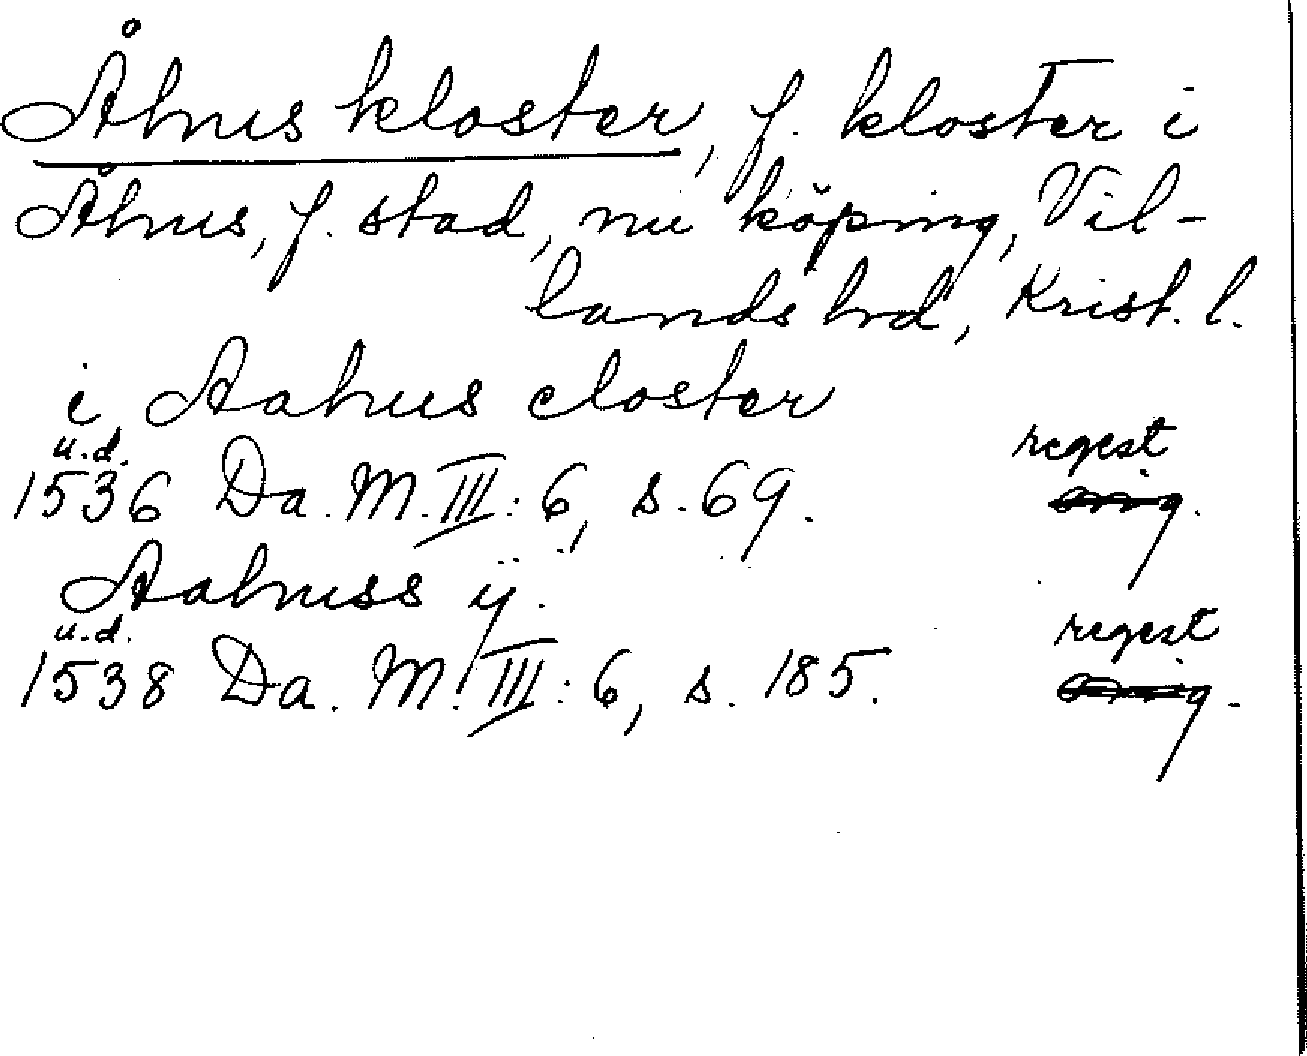 Åhus kloster, f. kloster i
Åhus, f. stad, nu köping, Vil-
lands hd, Krist. l.
i Aahus closter
u.d. regest
1536 Da. M. III: 6, s. 69. orig.
Aahuss ÿ.
u.d. regest
1538 Da. M. III: 6, s. 185. orig.